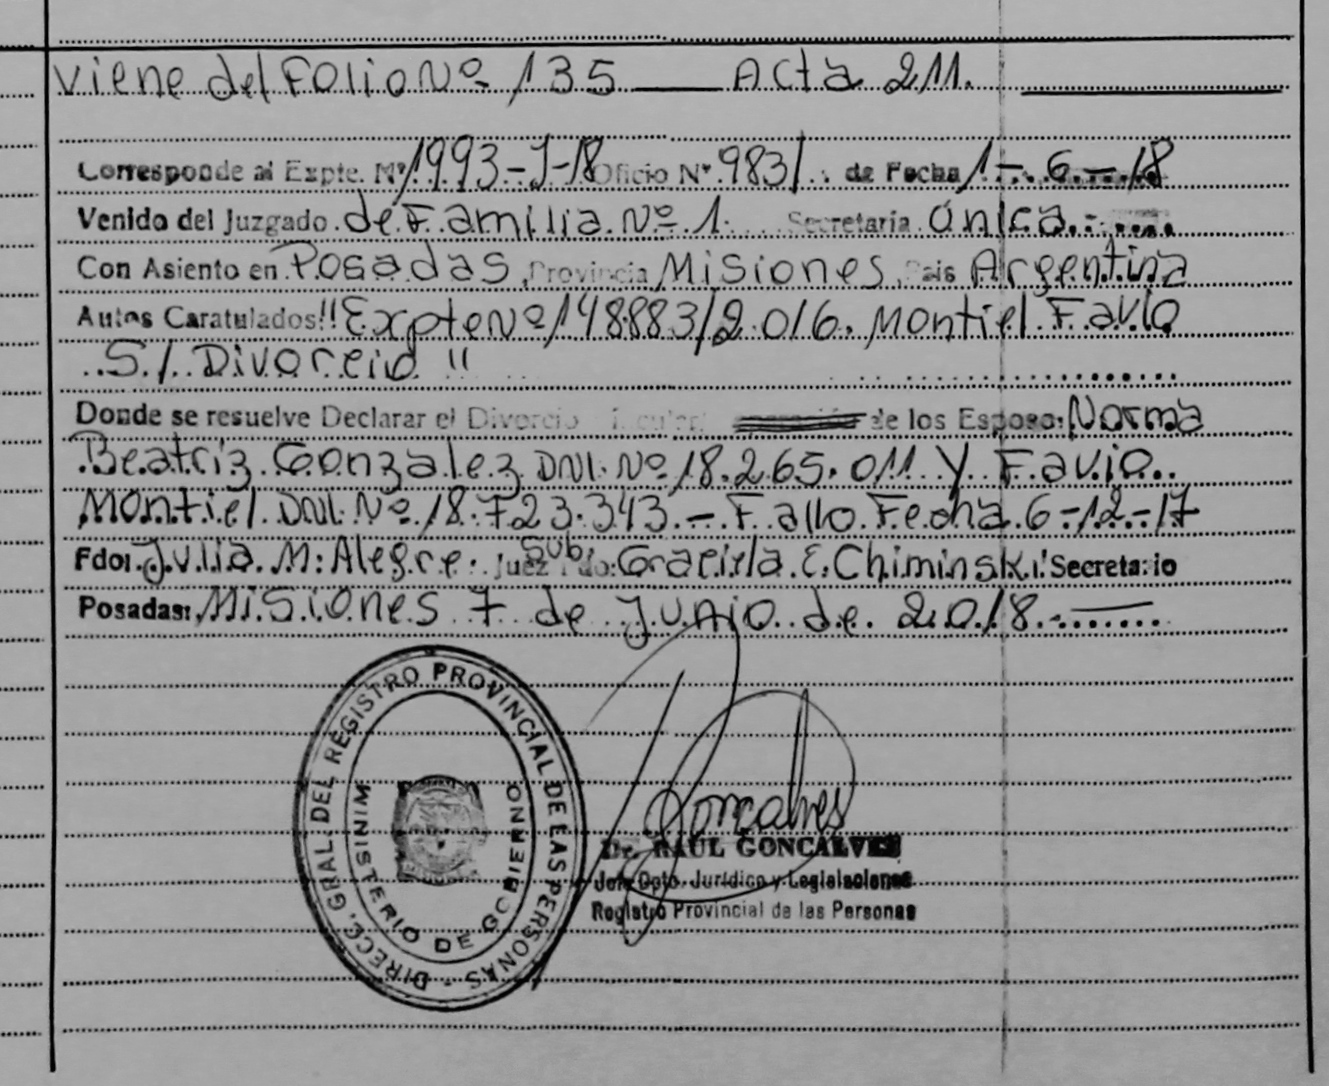 Viene del Folio Nº 135 Acta 211.
Corresponde al Expte. Nº 1993-J-18 Oficio Nº 983/ de Fecha 1-6-18
Venido del Juzgado de Familia Nº 1 Secretaria Única.-
Con Asiento en Posadas, Provincia Misiones, Pais Argentina
Autos Caratulados: "Expte Nº 148883/2016. Montiel Favio
S/ Divorcio"
Donde se resuelve Declarar el Divorcio de los Esposo: Norma
Beatriz Gonzalez DNI. Nº 18.265.011 y Favio
Montiel DNI. Nº 18.723.343.- Fallo Fecha 6-12-17
Fdo: Julia M. Alegre. Juez Fdo: Graciela E. Chiminski Sub Secretario
Posadas: Misiones 7 de Junio de 2018.-
DIRECC. GRAL. DEL REGISTRO PROVINCIAL DE LAS PERSONAS
MINISTERIO DE GOBIERNO
Goncalves
Dr. RAUL GONCALVES
Jefe Dpto. Jurídico y Legislaciones
Registro Provincial de las Personas